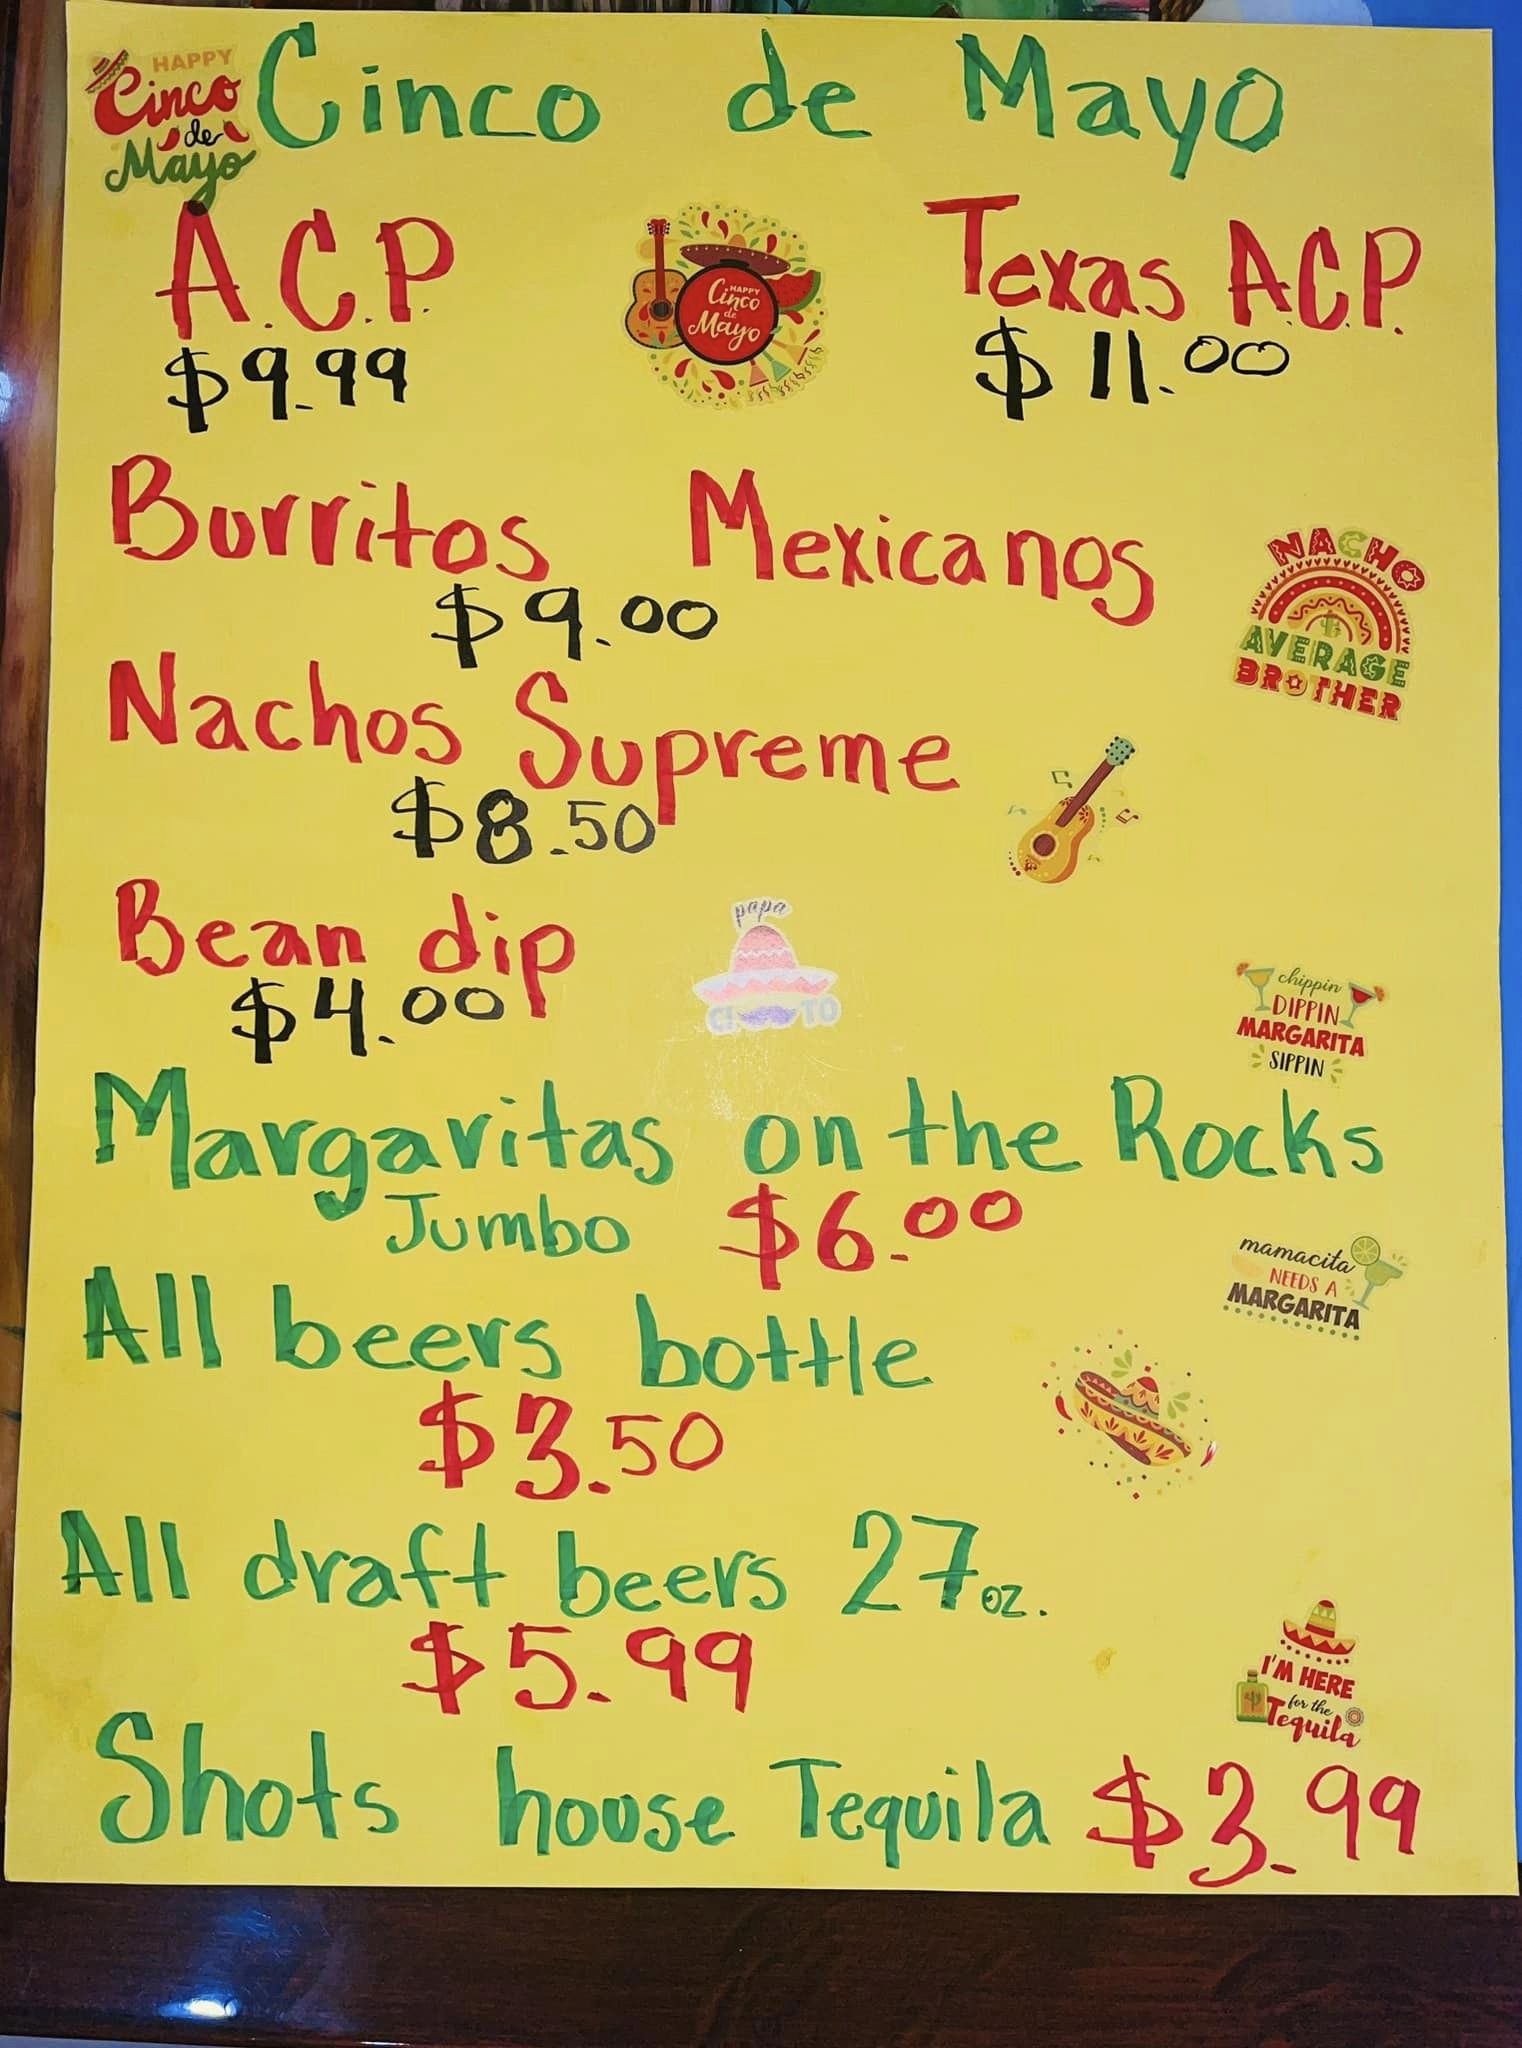 HAPPY
Cinco
de
Mayo
Cinco de Mayo
A.C.P.
$9.99
HAPPY
Cinco
de
Mayo
Texas A.C.P.
$11.00
Burritos Mexicanos
$9.00
NACHO
AVERAGE
BROTHER
Nachos Supreme
$8.50
Bean dip
$4.00
papa
chippin
DIPPIN
MARGARITA
SIPPIN
Margaritas on the Rocks
Jumbo $6.00
mamacita
NEEDS A
MARGARITA
All beers bottle
$3.50
All draft beers 27oz.
$5.99
I'M HERE
for the
Tequila
Shots house Tequila $3.99